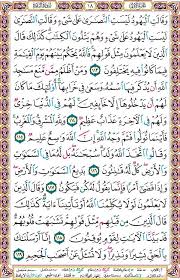 ١٨
وَقَالَتِ الْيَهُودُ لَيْسَتِ النَّصٰرٰى عَلٰى شَيْءٍ وَقَالَتِ النَّصٰرٰى
لَيْسَتِ الْيَهُودُ عَلٰى شَيْءٍ وَهُمْ يَتْلُونَ الْكِتٰبَ كَذٰلِكَ قَالَ الَّذِينَ
لَا يَعْلَمُونَ مِثْلَ قَوْلِهِمْ فَاللّٰهُ يَحْكُمُ بَيْنَهُمْ يَوْمَ الْقِيٰمَةِ
فِيمَا كَانُوا فِيهِ يَخْتَلِفُونَ ١١٣ وَمَنْ أَظْلَمُ مِمَّنْ مَنَعَ مَسٰجِدَ
اللّٰهِ أَنْ يُذْكَرَ فِيهَا اسْمُهُ وَسَعٰى فِي خَرَابِهَا أُولٰئِكَ مَا كَانَ
لَهُمْ أَنْ يَدْخُلُوهَا إِلَّا خَائِفِينَ لَهُمْ فِي الدُّنْيَا خِزْيٌ وَ
لَهُمْ فِي الْآخِرَةِ عَذَابٌ عَظِيمٌ ١١٤ وَلِلّٰهِ الْمَشْرِقُ وَالْمَغْرِبُ
فَأَيْنَمَا تُوَلُّوا فَثَمَّ وَجْهُ اللّٰهِ إِنَّ اللّٰهَ وَاسِعٌ عَلِيمٌ ١١٥
وَقَالُوا اتَّخَذَ اللّٰهُ وَلَدًا سُبْحٰنَهُ بَلْ لَهُ مَا فِي السَّمٰوٰتِ
وَالْأَرْضِ كُلٌّ لَهُ قٰنِتُونَ ١١٦ بَدِيعُ السَّمٰوٰتِ وَالْأَرْضِ
وَإِذَا قَضٰى أَمْرًا فَإِنَّمَا يَقُولُ لَهُ كُنْ فَيَكُونُ ١١٧ وَقَالَ الَّذِينَ
لَا يَعْلَمُونَ لَوْلَا يُكَلِّمُنَا اللّٰهُ أَوْ تَأْتِينَا آيَةٌ كَذٰلِكَ قَالَ
الَّذِينَ مِنْ قَبْلِهِمْ مِثْلَ قَوْلِهِمْ تَشٰبَهَتْ قُلُوبُهُمْ
قَدْ بَيَّنَّا الْآيٰتِ لِقَوْمٍ يُوقِنُونَ ١١٨ إِنَّا أَرْسَلْنٰكَ
بِالْحَقِّ بَشِيرًا وَنَذِيرًا وَلَا تُسْئَلُ عَنْ أَصْحٰبِ الْجَحِيمِ